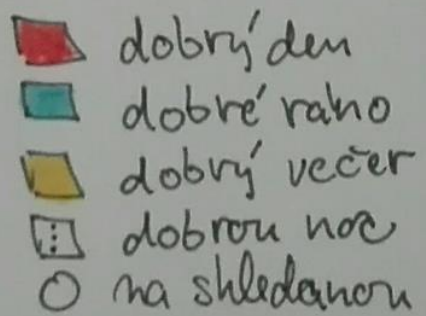 dobrý den
dobré ráno
dobrý večer
dobrou noc
na shledanou